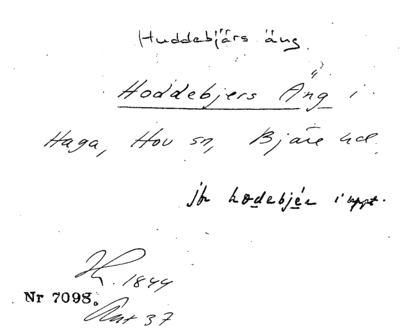 Huddebjärs äng.
Hoddebjers Äng i
Haga, Hov sn, Bjäre hd.
jfr hodebjér i uppt.
1844
Nr 7098.
Akt 37